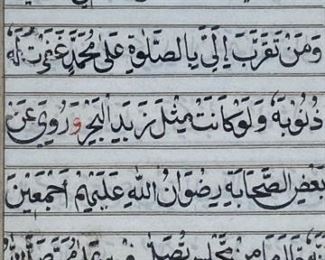 وَمَنْ تَقَرَّبَ إِلَيَّ بِالصَّلٰوةِ عَلٰى مُحَمَّدٍ غَفَرْتُ لَهُ
ذُنُوبَهُ وَلَوْ كَانَتْ مِثْلَ زَبَدِ الْبَحْرِ وَرُوِيَ عَنْ
بَعْضِ الصَّحَابَةِ رِضْوَانُ اللهِ عَلَيْهِمْ اَجْمَعِينَ